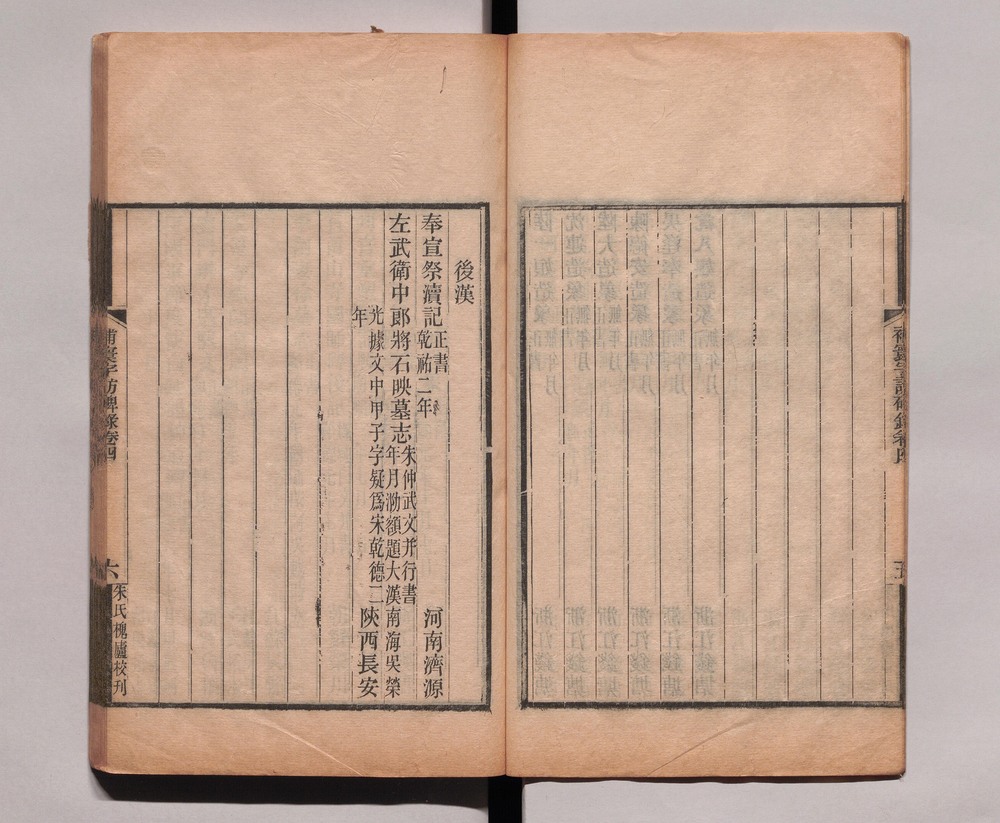 後漢
奉宣祭瀆記正書乾祐二年 河南濟源
左武衛中郎將石映墓志朱仲武文并行書年月泐額題大漢南海吳榮
光據文中甲子字疑爲宋乾德二年 陝西長安
補寰宇訪碑錄卷四
六
朱氏槐廬校刊
補寰宇訪碑錄卷四
五